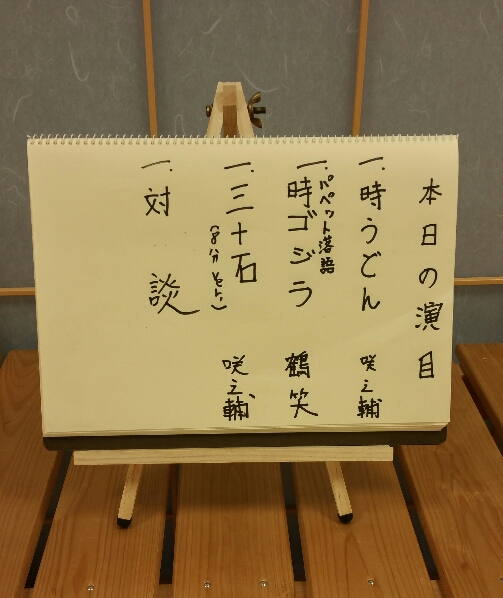 本日の演目
一、時うどん 咲之輔
一、パペット落語
時ゴジラ 鶴笑
一、三十石 咲之輔
一、対談